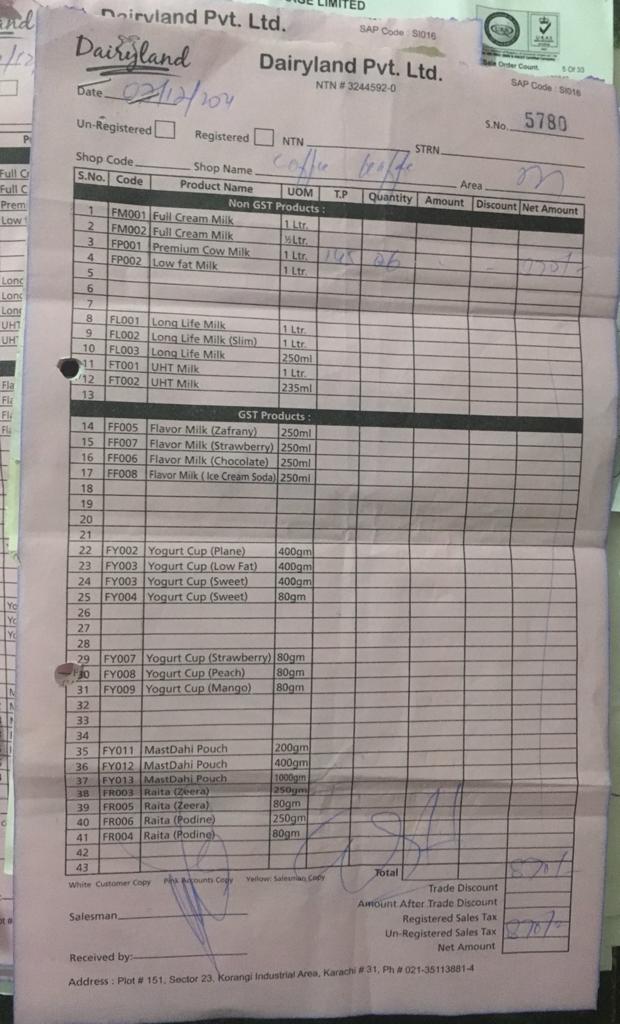 Dairyland Pvt. Ltd.
LIMITED
SAP Code : SI016
Dairyland
Dairyland Pvt. Ltd.
NTN # 3244592-0
Sale Order Count.
5 Of 33
SAP Code : SI016
Date
S.No. 5780
Un-Registered Registered NTN STRN.
Shop Code Shop Name Coffee Area
S.No. Code Product Name UOM T.P Quantity Amount Discount Net Amount
Non GST Products :
1 FM001 Full Cream Milk 1 Ltr.
2 FM002 Full Cream Milk ½Ltr.
3 FP001 Premium Cow Milk 1 Ltr. 145 06 - - 870/-
4 FP002 Low fat Milk 1 Ltr.
5
6
7
8 FL001 Long Life Milk 1 Ltr.
9 FL002 Long Life Milk (Slim) 1 Ltr.
10 FL003 Long Life Milk 250ml
11 FT001 UHT Milk 1 Ltr.
12 FT002 UHT Milk 235ml
13
GST Products :
14 FF005 Flavor Milk (Zafrany) 250ml
15 FF007 Flavor Milk (Strawberry) 250ml
16 FF006 Flavor Milk (Chocolate) 250ml
17 FF008 Flavor Milk ( Ice Cream Soda) 250ml
18
19
20
21
22 FY002 Yogurt Cup (Plane) 400gm
23 FY003 Yogurt Cup (Low Fat) 400gm
24 FY003 Yogurt Cup (Sweet) 400gm
25 FY004 Yogurt Cup (Sweet) 80gm
26
27
28
29 FY007 Yogurt Cup (Strawberry) 80gm
30 FY008 Yogurt Cup (Peach) 80gm
31 FY009 Yogurt Cup (Mango) 80gm
32
33
34
35 FY011 MastDahi Pouch 200gm
36 FY012 MastDahi Pouch 400gm
37 FY013 MastDahi Pouch 1000gm
38 FR003 Raita (Zeera) 250gm
39 FR005 Raita (Zeera) 80gm
40 FR006 Raita (Podine) 250gm
41 FR004 Raita (Podine) 80gm
42
43
White Customer Copy Pink Accounts Copy Yellow: Salesman Copy
Total 870/-
Trade Discount
Amount After Trade Discount
Salesman
Registered Sales Tax
Un-Registered Sales Tax 870/-
Net Amount
Received by:
Address : Plot # 151, Sector 23, Korangi Industrial Area, Karachi # 31, Ph # 021-35113881-4